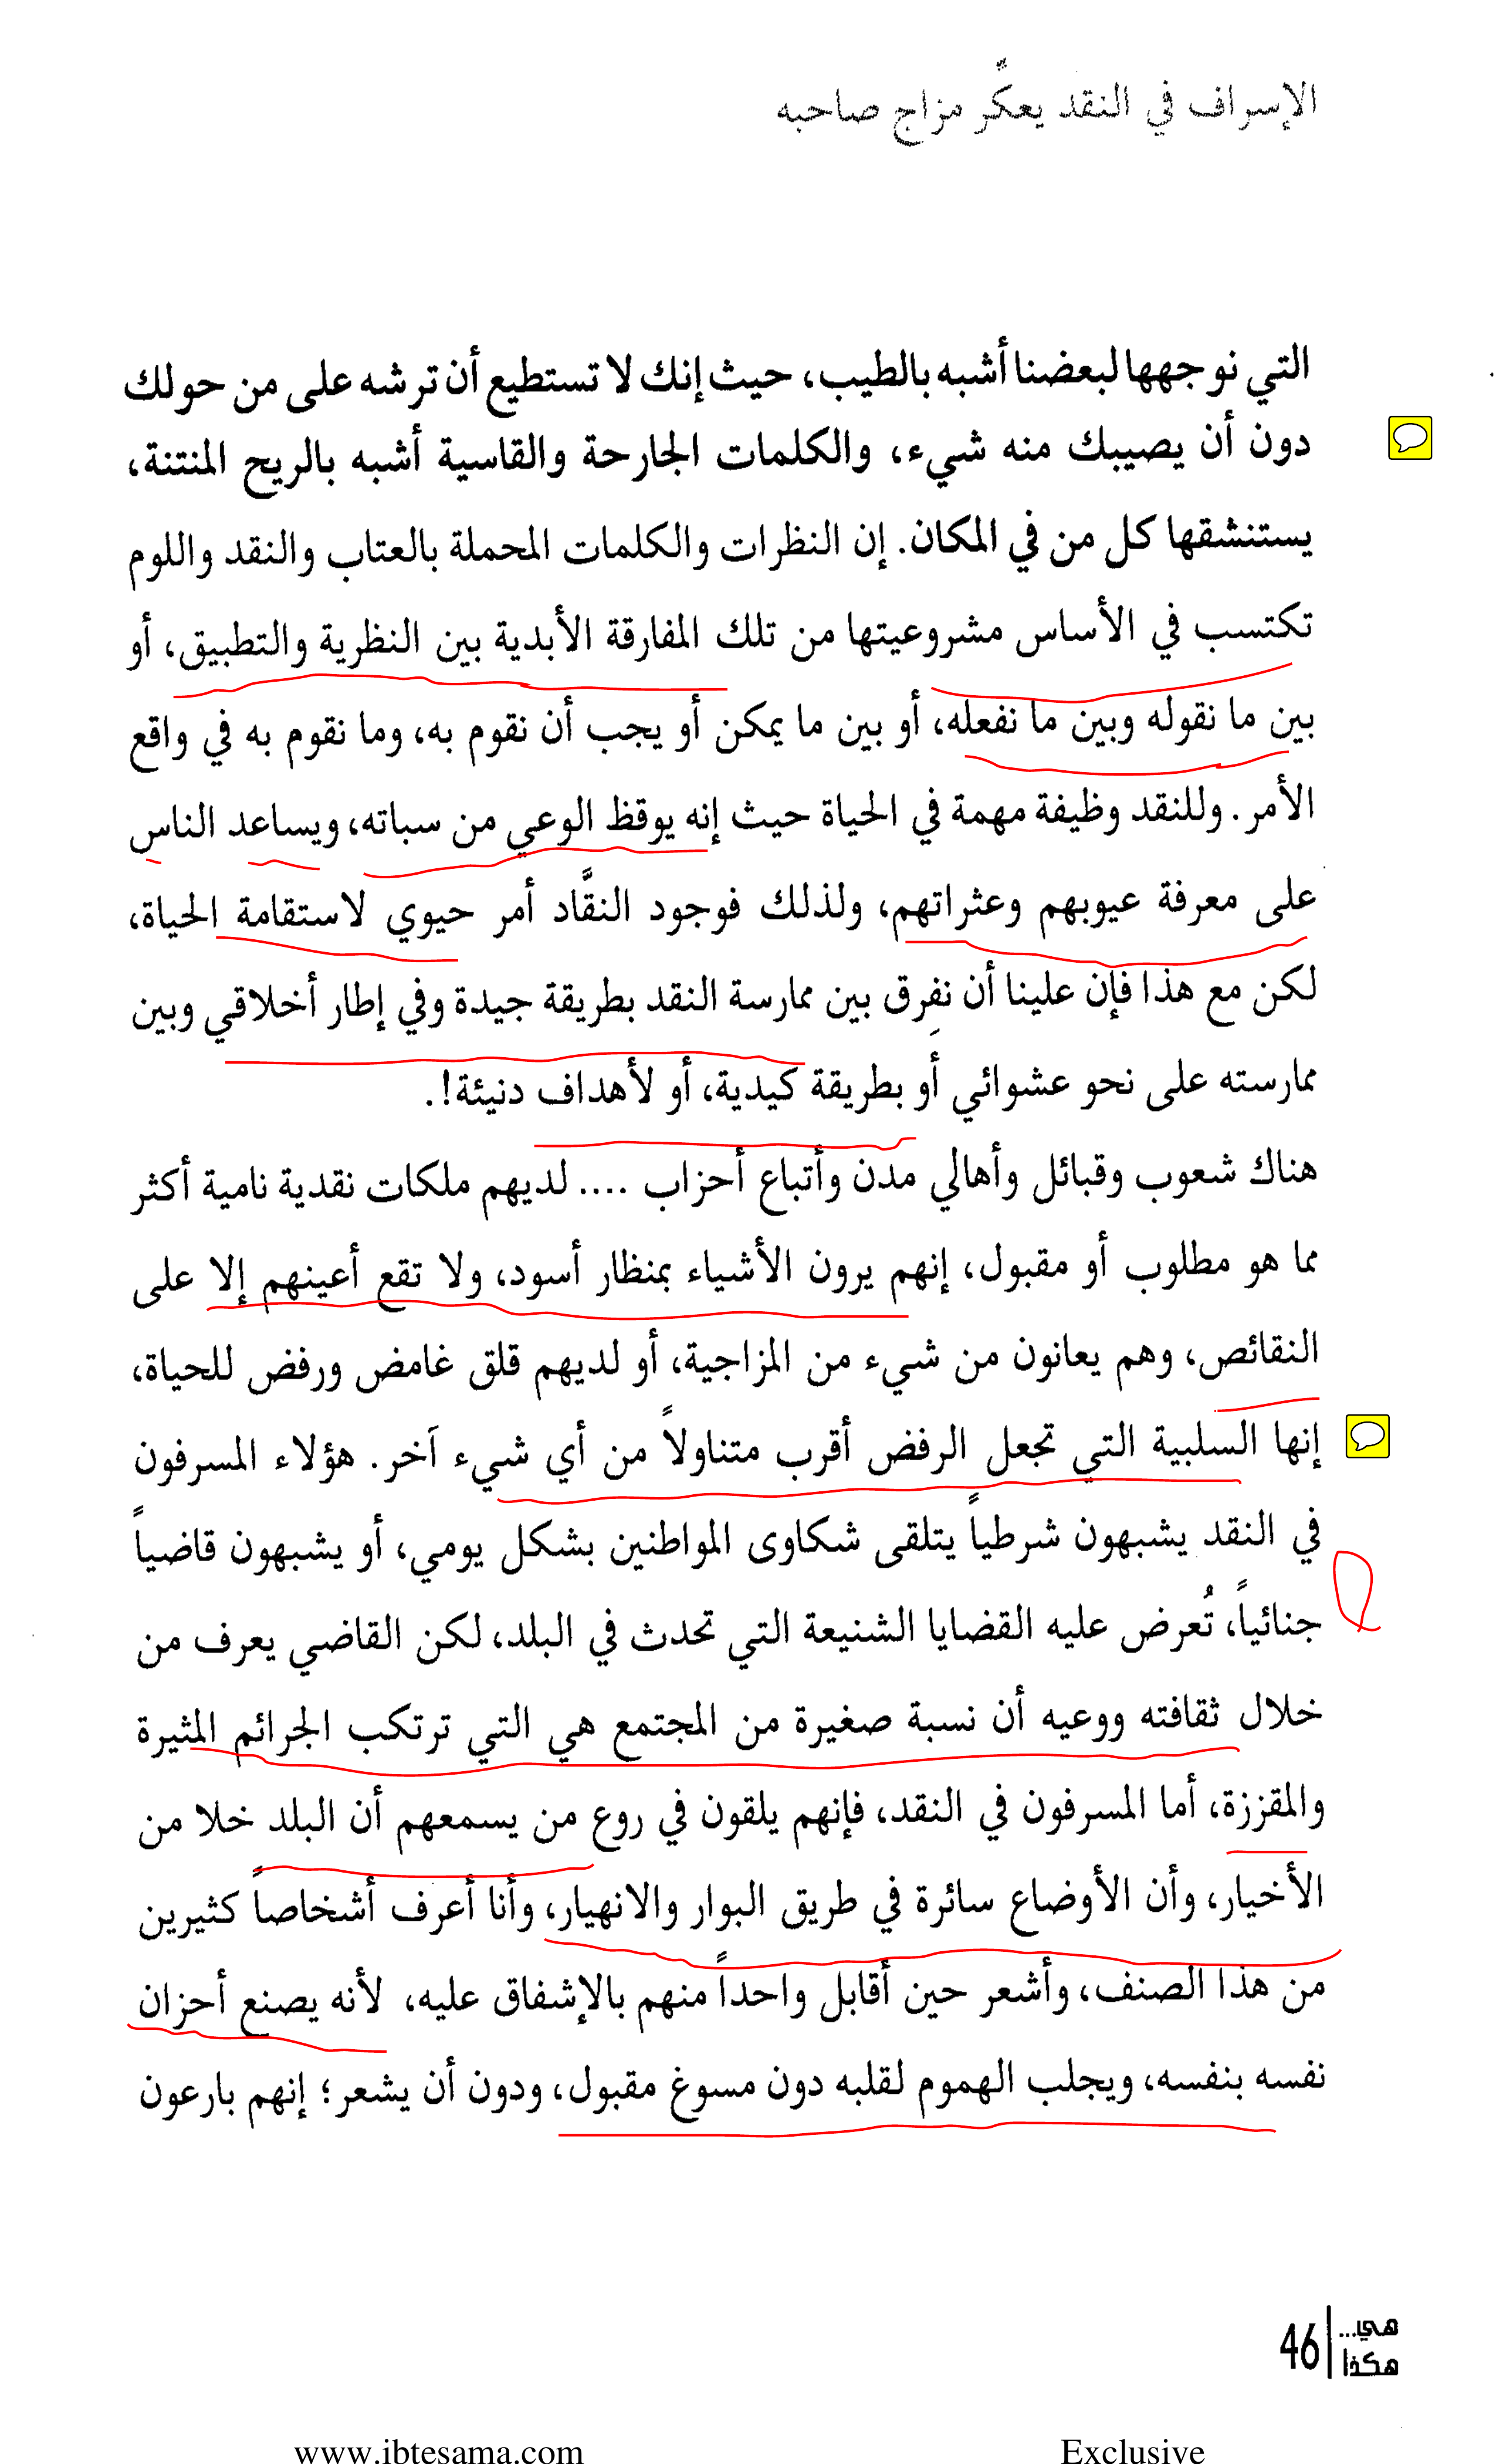 الإسراف في النقد يعكّر مزاج صاحبه
التي نوجهها لبعضنا أشبه بالطيب، حيث إنك لا تستطيع أن ترشه على من حولك
دون أن يصيبك منه شيء، والكلمات الجارحة والقاسية أشبه بالريح المنتنة،
يستنشقها كل من في المكان. إن النظرات والكلمات المحملة بالعتاب والنقد واللوم
تكتسب في الأساس مشروعيتها من تلك المفارقة الأبدية بين النظرية والتطبيق، أو
بين ما نقوله وبين ما نفعله، أو بين ما يمكن أو يجب أن نقوم به، وما نقوم به في واقع
الأمر. وللنقد وظيفة مهمة في الحياة حيث إنه يوقظ الوعي من سباته، ويساعد الناس
على معرفة عيوبهم وعثراتهم، ولذلك فوجود النقَّاد أمر حيوي لاستقامة الحياة،
لكن مع هذا فإن علينا أن نفرِق بين ممارسة النقد بطريقة جيدة وفي إطار أخلاقي وبين
ممارسته على نحو عشوائي أو بطريقة كيدية، أو لأهداف دنيئة!.
هناك شعوب وقبائل وأهالي مدن وأتباع أحزاب .... لديهم ملكات نقدية نامية أكثر
مما هو مطلوب أو مقبول، إنهم يرون الأشياء بمنظار أسود، ولا تقع أعينهم إلا على
النقائص، وهم يعانون من شيء من المزاجية، أو لديهم قلق غامض ورفض للحياة،
إنها السلبية التي تجعل الرفض أقرب متناولاً من أي شيء آخر. هؤلاء المسرفون
في النقد يشبهون شرطياً يتلقى شكاوى المواطنين بشكل يومي، أو يشبهون قاضياً
جنائياً، تُعرض عليه القضايا الشنيعة التي تحدث في البلد، لكن القاضي يعرف من
خلال ثقافته ووعيه أن نسبة صغيرة من المجتمع هي التي ترتكب الجرائم المثيرة
والمقززة، أما المسرفون في النقد، فإنهم يلقون في روع من يسمعهم أن البلد خلا من
الأخيار، وأن الأوضاع سائرة في طريق البوار والانهيار، وأنا أعرف أشخاصاً كثيرين
من هذا الصنف، وأشعر حين أقابل واحداً منهم بالإشفاق عليه، لأنه يصنع أحزان
نفسه بنفسه، ويجلب الهموم لقلبه دون مسوغ مقبول، ودون أن يشعر؛ إنهم بارعون
هي...
هكذا
46
www.ibtesama.com Exclusive